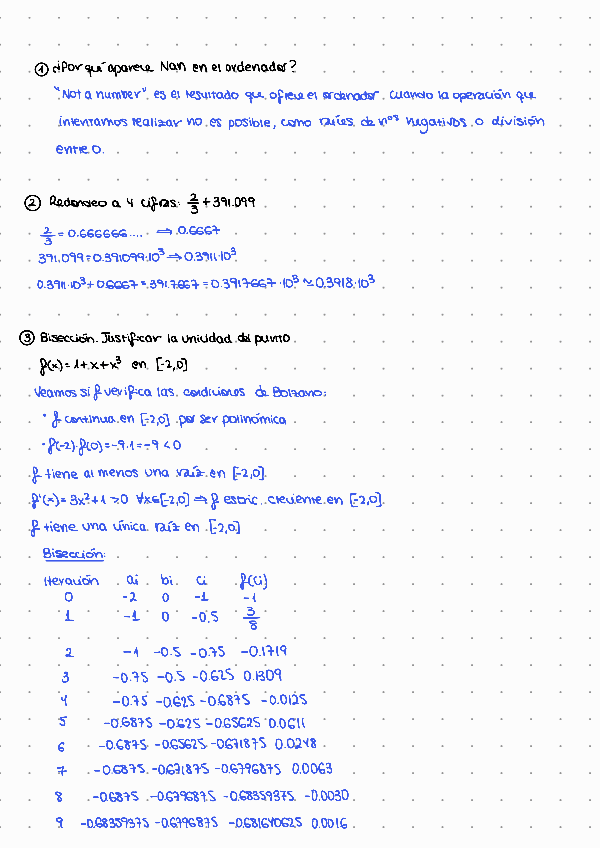 ① ¿Por qué aparece Nan en el ordenador?
"Not a number" es el resultado que ofrece el ordenador cuando la operación que
intentamos realizar no es posible, como raíces de nºs negativos o división
entre 0.
② Redondeo a 4 cifras: 2/3 + 391.099
2/3 = 0.666666.... ⇒ 0.6667
391.099 = 0.391099·10³ ⇒ 0.3911·10³
0.3911·10³ + 0.6667 = 391.7667 = 0.3917667·10³ ≈ 0.3918·10³
③ Bisección. Justificar la unicidad del punto
f(x) = 1+x+x³ en [-2,0]
Veamos si f verifica las condiciones de Bolzano:
· f continua en [-2,0] por ser polinómica
· f(-2)·f(0) = -9·1 = -9 < 0
f tiene al menos una raíz en [-2,0].
f'(x) = 3x²+1 > 0 ∀x∈[-2,0] ⇒ f estric. creciente en [-2,0].
f tiene una única raíz en [-2,0]
Bisección:
Iteración ai bi ci f(ci)
0 -2 0 -1 -1
1 -1 0 -0.5 3/8
2 -1 -0.5 -0.75 -0.1719
3 -0.75 -0.5 -0.625 0.1309
4 -0.75 -0.625 -0.6875 -0.0125
5 -0.6875 -0.625 -0.65625 0.0611
6 -0.6875 -0.65625 -0.671875 0.0248
7 -0.6875 -0.671875 -0.6796875 0.0063
8 -0.6875 -0.6796875 -0.68359375 -0.0030
9 -0.68359375 -0.6796875 -0.681640625 0.0016